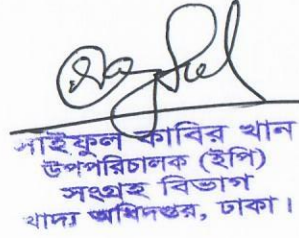 সাইফুল কাবির খান
উপপরিচালক (ইপি)
সংগ্রহ বিভাগ
খাদ্য অধিদপ্তর, ঢাকা।